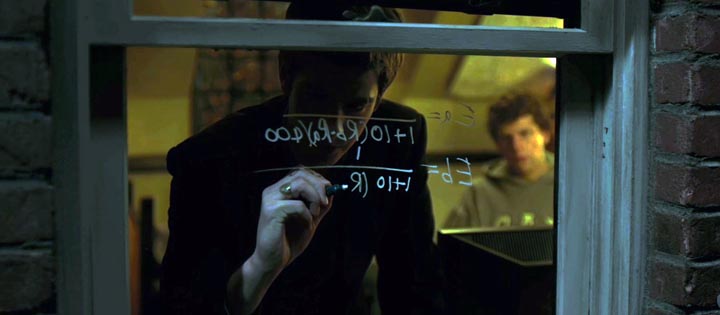 Ea =
1+10(Rb-Ra)/400
1
Eb =
1+10(R